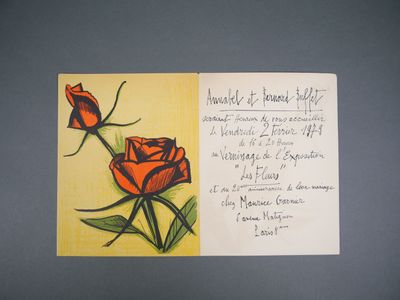 Annabel et Bernard Buffet
seraient heureux de vous accueillir
le Vendredi 2 Fevrier 1979
de 16 à 20 Heures
au Vernissage de l'Exposition
"Les Fleurs"
et au 20ème anniversaire de leur mariage
chez Maurice Garnier
6 avenue Matignon
Paris 8ème